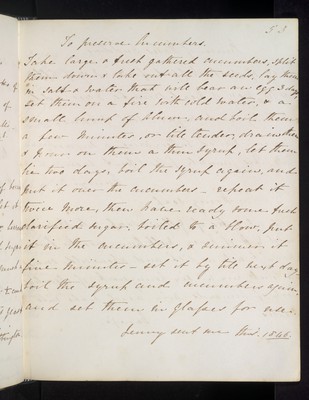 53
To preserve Cucumbers.
Take large & fresh gathered cucumbers, split
them down & take out all the seeds, lay them
in salt & water that will bear an egg 3 days
set them on a fire with cold water, & a
small lump of alum, and boil them
a few minutes, or till tender, drain them
& pour on them a thin syrup, let them
lie two days, boil the syrup again, and
put it over the cucumbers – repeat it
twice more, then have ready some fresh
clarified sugar, boiled to a blow, put
it in the cucumbers, & simmer it
five minutes – set it by till next day,
boil the syrup and cucumbers again,
and set them in glasses for use.
Jenny sent me this. 1846.